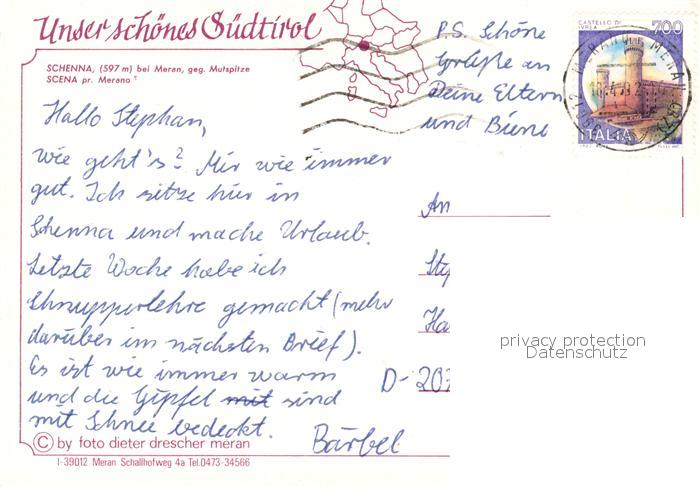 Unser schönes Südtirol
SCHENNA, (597 m) bei Meran, geg. Mutspitze
SCENA pr. Merano
Hallo Stephan,
wie geht's? Mir wie immer
gut. Ich sitze hier in
Schenna und mache Urlaub.
Letzte Woche habe ich
Schnupperlehre gemacht (mehr
darüber im nächsten Brief).
Es ist wie immer warm
und die Gipfel mit sind
mit Schnee bedeckt.
Bärbel
© by foto dieter drescher meran
I-39012 Meran Schallhofweg 4a Tel.0473-34566
P.S. Schöne
Grüße an
Deine Eltern
und Biene
CASTELLO DI
IVREA
700
ITALIA
An
D-
privacy protection
Datenschutz